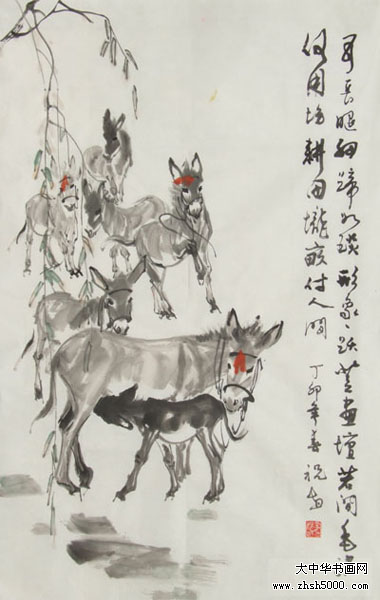 耳长腿细蹄如鉄形象々跃登画壇若问毛
何用场耕田壠畝付人间 丁卯年春祝
大中华书画网
www.zhsh5000.com